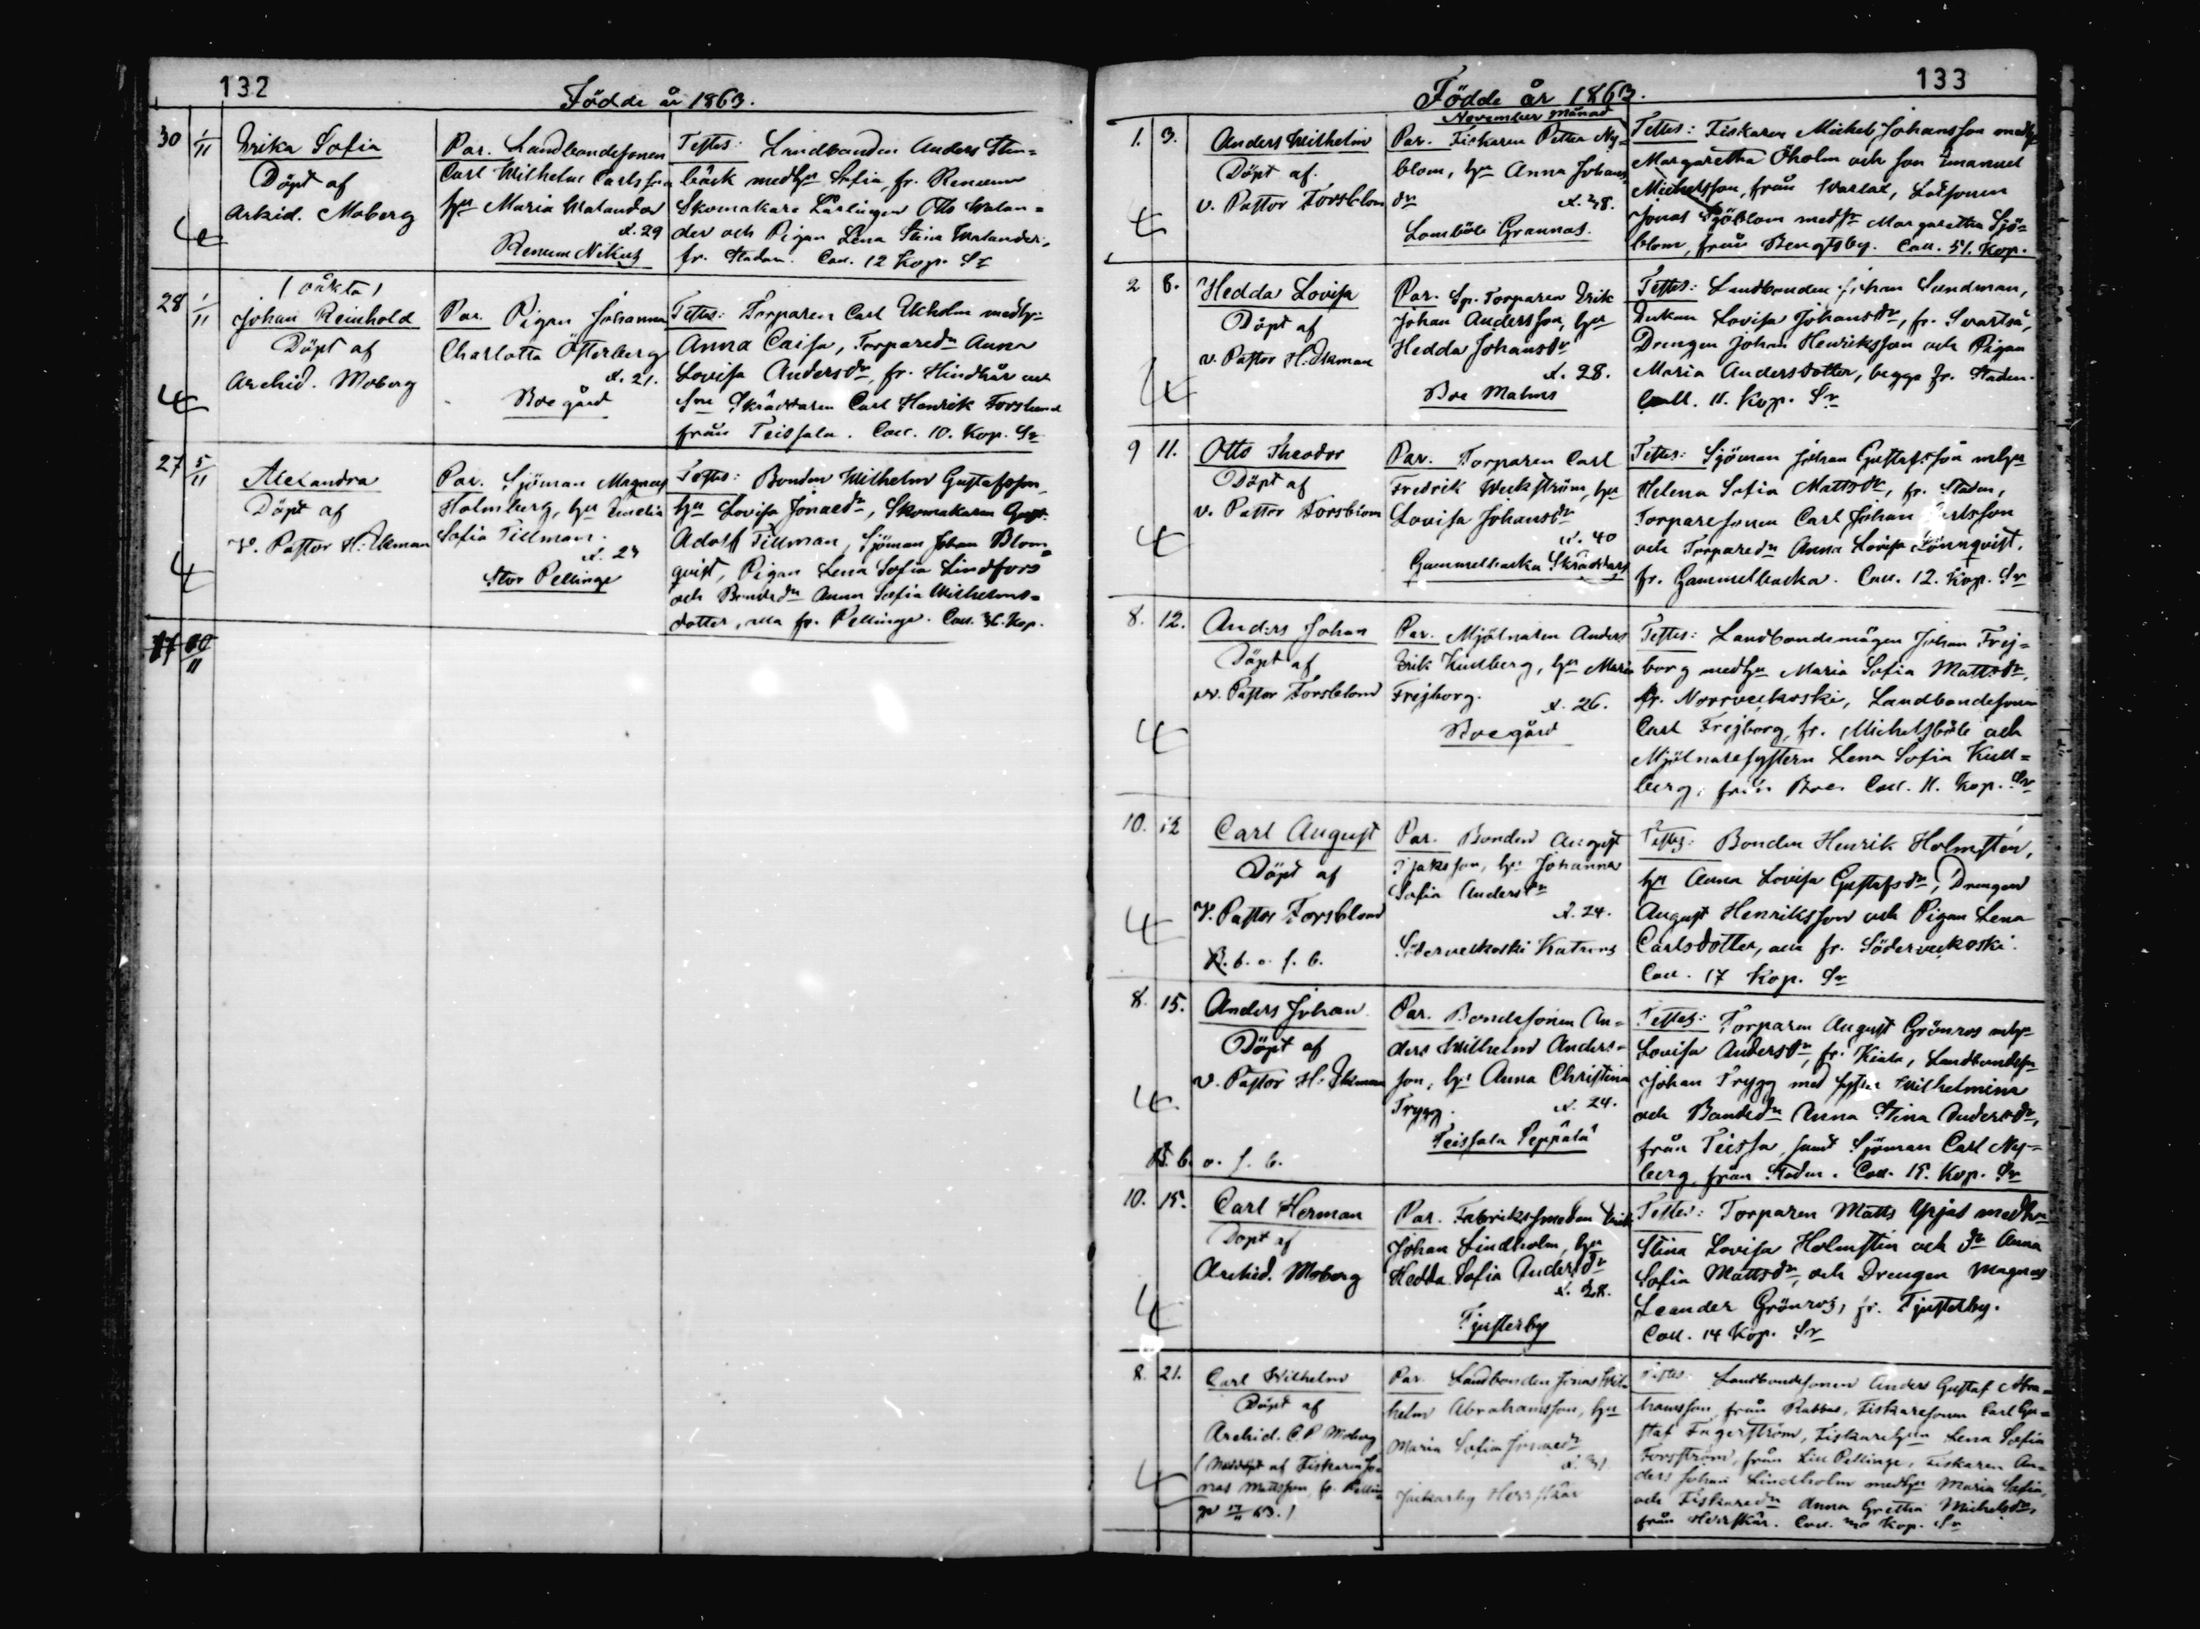 132
Födde år 1863.
30 1/11 Erika Sofia
Döpt af
Arkid. Moberg
Par. Landbondesonen
Carl Wilhelm Carlsson
hu Maria Walander
æ. 29
Renum Nikus
Testes: Landbonden Anders Sten=
bäck med hu Sofia fr. Renum
Skomakare Lärlingen Otto Walan=
der och Pigan Lena Stina Walander,
fr. Staden. Coll. 12 Kop. Sr
28 1/11 (oäkta)
Johan Reinhold
Döpt af
Archid. Moberg
Par. Pigan Johanna
Charlotta Österberg
æ. 21.
Boe gård
Testes: Torparen Carl Ekholm med hu
Anna Caisa, Torparedr Anna
Lovisa Andersdr, fr. Hindhår
Skräddaren Carl Henrik Forslund
från Teissala. Coll. 10. Kop. Sr
27 5/11 Alexandra
Döpt af
V. Pastor H. Ekman
Par. Sjöman Magnus
Holmberg, hu Amelia
Sofia Tillman.
Stor Pellinge
Testes: Bonden Wilhelm Gustafsson,
hu Lovisa Jonaedr, Skomakaren Gust.
Adolf Tillman, Sjöman Johan Blom=
qvist, Pigan Lena Sofia Lindfors
och Bondedr Anna Sofia Wilhelms=
dotter, alla fr. Pellinge. Coll. 36. Kop.
133
Födde år 1863.
November Månad
1. 3. Anders Wilhelm
Döpt af
v. Pastor Forsblom
Par. Fiskaren Petter Ny=
blom, hu Anna Johans
dr
Lomböle Grannas.
Testes: Fiskaren Michels Johansson med hu
Margaretha Öholm och son Emanuel
Michelsson, från
Jonas Sjöblom med hu Margaretha Sjö=
blom, från Bengtsby. Coll. 51. Kop.
2 8. Hedda Lovisa
Döpt af
v. Pastor H. Ekman
Par. Sp. Torparen Erik
Johan Andersson, hu
Hedda Johansdr
æ. 28.
Boe Malms
Testes: Landbonden Johan Sundman,
Enkan Lovisa Johansdr, fr. Svartså,
Drengen Johan Henriksson och Pigan
Maria Andersdotter, begge fr. Staden.
Coll. 11. Kop. Sr
9 11. Otto Theodor
Döpt af
v. Pastor Forsblom
Par. Torparen Carl
Fredrik Weckström, hu
Lovisa Johansdr
æ. 40
Gammelbacka Skräddars
Testes: Sjöman Johan Gustafsson m hu
Helena Sofia Mattsdr, fr. Staden,
Torparesonen Carl Johan Carlsson
och Torparedr Anna Lovisa Lönnqvist,
fr. Gammelbacka. Coll. 12. Kop. Sr
8. 12. Anders Johan
Döpt af
v. Pastor Forsblom
Par. Mjölnaren Anders
Erik Kullberg, hu Maria
Frejborg.
æ. 26.
Boe gård
Testes: Landbondemågen Johan Frej=
borg med hu Maria Sofia Mattsdr,
fr. Norrveckoski, Landbondesonen
Carl Frejborg, fr. Michelsböle och
Mjölnaresystern Lena Sofia Kull=
berg, från Boe. Coll. 11. Kop. Sr
10. 12 Carl August
Döpt af
V. Pastor Forsblom
B. b. o. f. b.
Par. Bonden August
Isaksson, hu Johanna
Sofia Andersdr
æ. 24.
Söderveckoski Katrins
Testes: Bonden Henrik Holmstén,
hu Anna Lovisa Gustafsdr, Drengen
August Henriksson och Pigan Lena
Carlsdotter, alla fr. Söderveckoski.
Coll. 17 Kop. Sr
8. 15. Anders Johan
Döpt af
v. Pastor H. Ekman
B. b. o. f. b.
Par. Bondesonen An=
ders Wilhelm Anders=
son, hu Anna Christina
Trygg.
æ. 24.
Teissala Seppälä
Testes: Torparen August Grönros m hu
Lovisa Andersdr, fr. Kiala, Landbondeson
Johan Trygg med syster Wilhelmina
och Bondedr Anna Stina Andersdr,
från Teissa, samt Sjöman Carl Ny=
berg, från Staden. Coll. 15. Kop. Sr
10. 15. Carl Herman
Döpt af
Archid. Moberg
Par. Fabrikssmeden Erik
Johan Lindholm, hu
Hedda Sofia Andersdr
æ. 28.
Tjusterby
Testes: Torparen Matts Yrjas med hu
Stina Lovisa Holmstén och dr Anna
Sofia Mattsdr, och Drengen Magnus
Leander Grönros, fr. Tjusterby.
Coll. 14 Kop. Sr
8. 21. Carl Wilhelm
Döpt af
Archid. C. P. Moberg
(Nöddöpt af Fiskaren Jo=
nas Mattsson, fr. Pellin=
ge 17/11 63.)
Par. Landbonden Jonas Wil=
helm Abrahamsson, hu
Maria Sofia Jonaedr
æ. 31
Jackarby Herrskär
Testes: Landbondesonen Anders Gustaf Abra=
hamsson, från Rabbas, Fiskaresonen Carl Gu=
staf Fagerström, Fiskare hu Lena Sofia
Forsström, från Lill Pellinge, Fiskaren An=
ders Johan Lindholm med hu Maria Sofia,
och Fiskaredr Anna Gretha Michelsdr,
från Herrskär. Coll. Kop. Sr